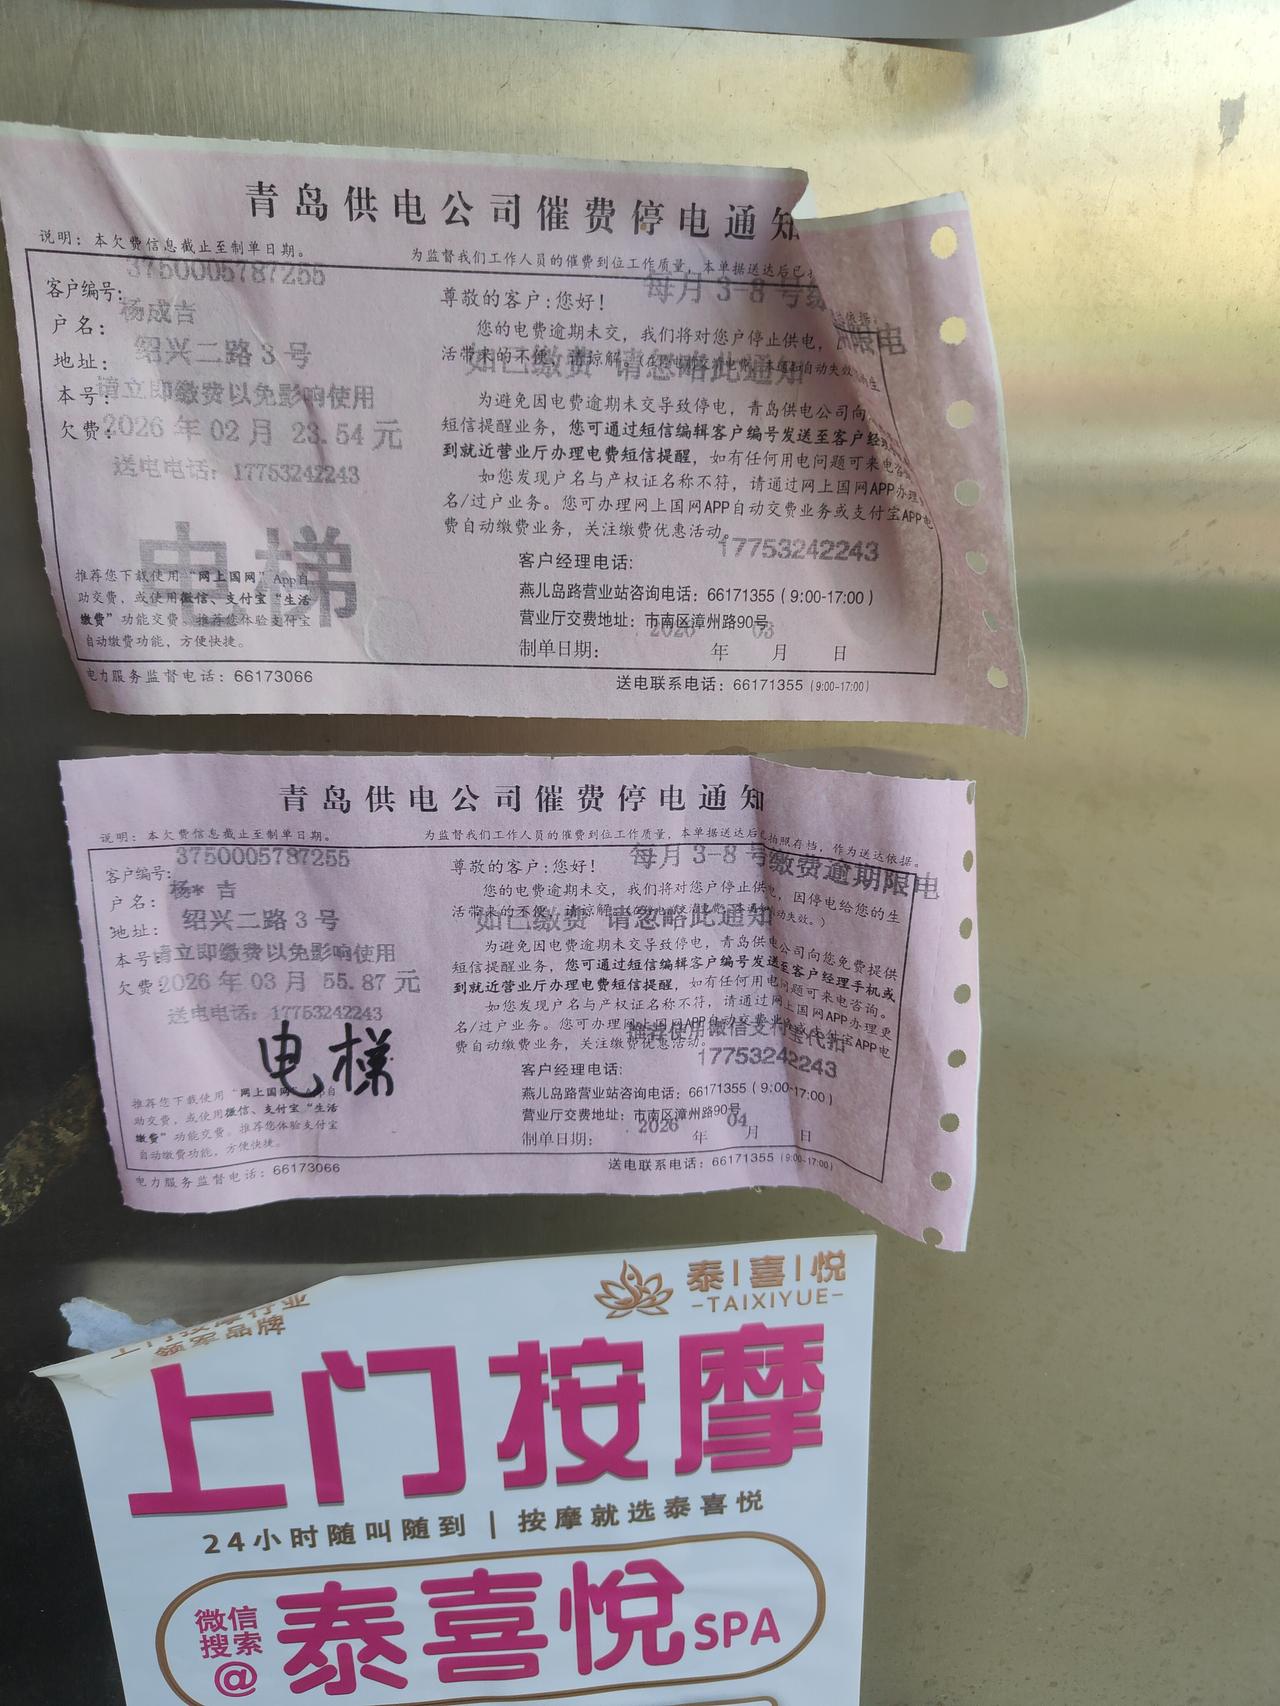 青岛供电公司催费停电通知
说明：本欠费信息截止至制单日期。
为监督我们工作人员的催费到位工作质量，本单据送达后已
客户编号：3750005787255
户名：杨成吉
地址：绍兴二路3号
本号：请立即缴费以免影响使用
欠费：2026年02月 23.54元
送电电话：17753242243
电梯
推荐您下载使用“网上国网”App自
助交费，或使用微信、支付宝“生活
缴费”功能交费。推荐您体验支付宝
自动缴费功能，方便快捷。
电力服务监督电话：66173066
尊敬的客户：您好！
每月3-8号
限电
您的电费逾期未交，我们将对您户停止供电，
活带来的不便，请谅解。
如已缴费 请忽略此通知
为避免因电费逾期未交导致停电，青岛供电公司向
短信提醒业务，您可通过短信编辑客户编号发送至客户经
到就近营业厅办理电费短信提醒，如有任何用电问题可来电咨
如您发现户名与产权证名称不符，请通过网上国网APP办理
名/过户业务。您可办理网上国网APP自动交费业务或支付宝APP电
费自动缴费业务，关注缴费优惠活动。
客户经理电话：17753242243
燕儿岛路营业站咨询电话：66171355（9:00-17:00）
营业厅交费地址：市南区漳州路90号
制单日期：2026年03月 日
送电联系电话：66171355（9:00-17:00）
青岛供电公司催费停电通知
说明：本欠费信息截止至制单日期。
为监督我们工作人员的催费到位工作质量，本单据送达后已拍照存档，作为送达依据。
客户编号：3750005787255
户名：杨* 吉
地址：绍兴二路3号
本号：请立即缴费以免影响使用
欠费：2026年03月 55.87元
送电电话：17753242243
电梯
推荐您下载使用“网上国网”App自
助交费，或使用微信、支付宝“生活
缴费”功能交费。推荐您体验支付宝
自动缴费功能，方便快捷。
电力服务监督电话：66173066
尊敬的客户：您好！
每月3-8号缴费逾期限电
您的电费逾期未交，我们将对您户停止供电，因停电给您的生
活带来的不便，请谅解。
如已缴费 请忽略此通知
为避免因电费逾期未交导致停电，青岛供电公司向您免费提供
短信提醒业务，您可通过短信编辑客户编号发送至客户经理手机或
到就近营业厅办理电费短信提醒，如有任何用电问题可来电咨询。
如您发现户名与产权证名称不符，请通过网上国网APP办理更
名/过户业务。您可办理网上国网APP自动交费业务或支付宝APP电
费自动缴费业务，关注缴费优惠活动。
推荐使用微信支付宝代扣
客户经理电话：17753242243
燕儿岛路营业站咨询电话：66171355（9:00-17:00）
营业厅交费地址：市南区漳州路90号
制单日期：2026年04月 日
送电联系电话：66171355（9:00-17:00）
泰|喜|悦
-TAIXIYUE-
上门按摩行业
领军品牌
上门按摩
24小时随叫随到 | 按摩就选泰喜悦
微信
搜索
@
泰喜悦SPA